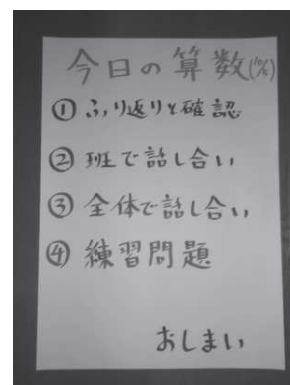 今日の算数(10/5)
① ふり返りと確認
② 班で話し合い
③ 全体で話し合い
④ 練習問題
おしまい